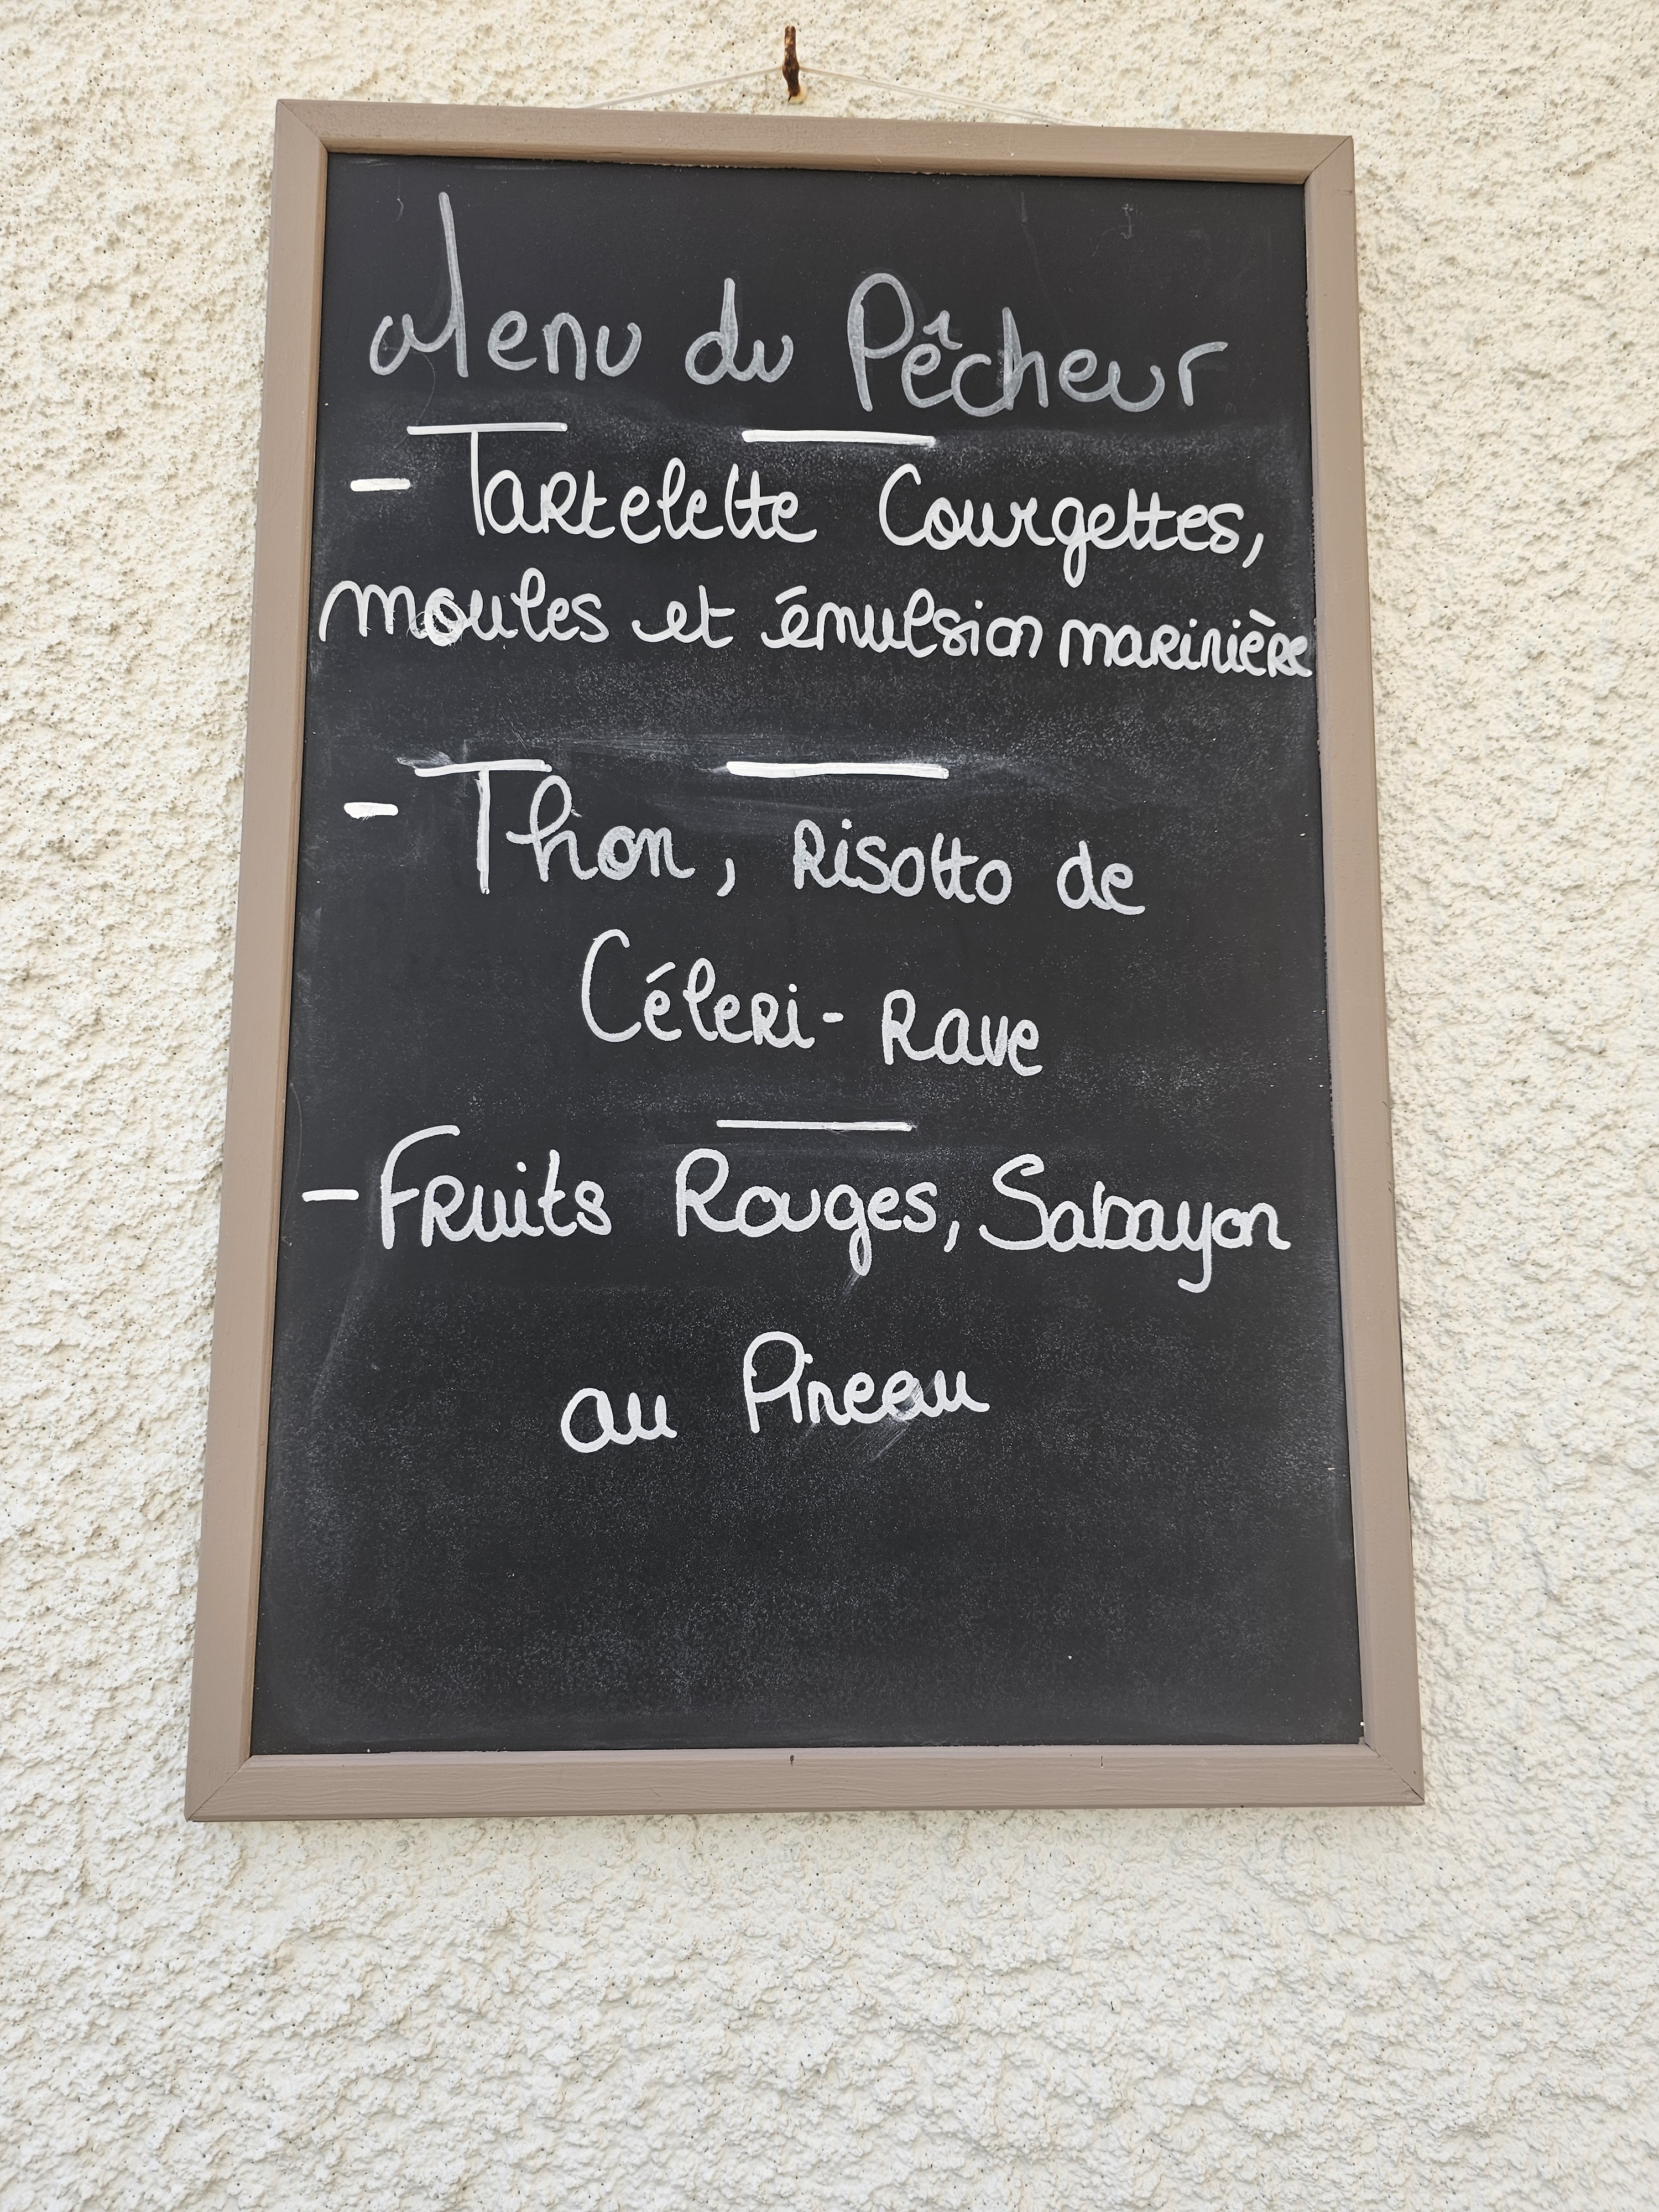 Menu du Pêcheur
- Tartelette Courgettes,
moules et émulsion marinière
- Thon, risotto de
Céleri-Rave
- Fruits Rouges, Sabayon
au Pineau